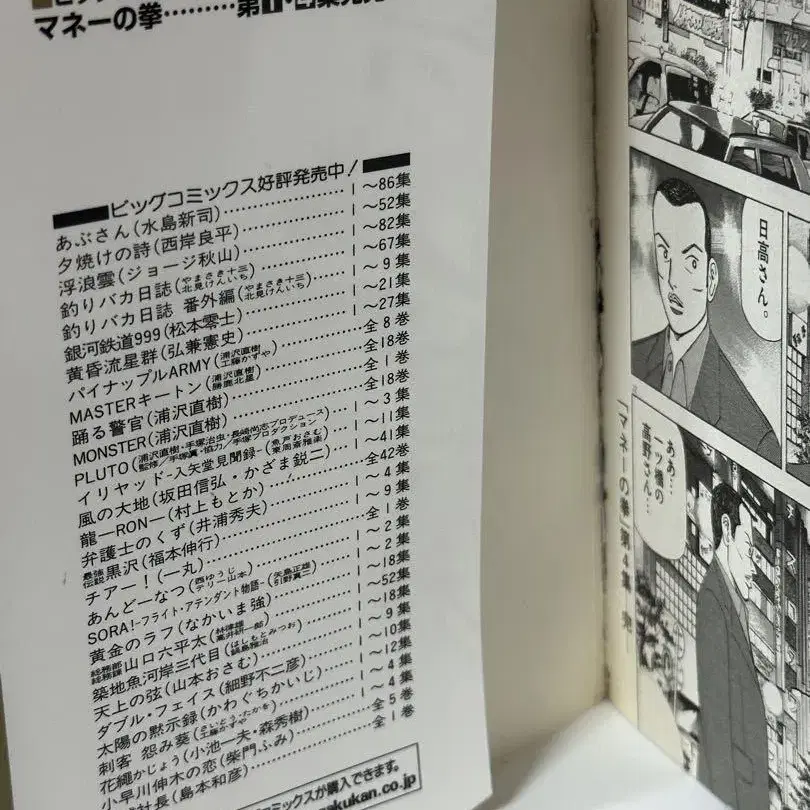 マネーの拳………第1・
ビッグコミックス好評発売中!
あぶさん(水島新司)……………1~86集
夕焼けの詩(西岸良平)……………1~52集
浮浪雲(ジョージ秋山)……………1~82集
釣りバカ日誌(やまさき十三 北見けんいち)……………1~67集
釣りバカ日誌 番外編(やまさき十三 北見けんいち)……………1~9集
銀河鉄道999(松本零士)……………1~21集
黄昏流星群(弘兼憲史)……………1~27集
パイナップルARMY(浦沢直樹 工藤かずや)……………全8巻
MASTERキートン(浦沢直樹 勝鹿北星)……………全18巻
踊る警官(浦沢直樹)……………全1巻
MONSTER(浦沢直樹)……………全18巻
PLUTO(浦沢直樹・手塚治虫・長崎尚志プロデュース 監修/手塚眞・協力/手塚プロダクション)……1~3集
イリヤッド-入矢堂見聞録-(魚戸おさむ 東周斎雅楽)……1~11集
風の大地(坂田信弘・かざま鋭二)……………1~41集
龍―RON―(村上もとか)……………全42巻
弁護士のくず(井浦秀夫)……………1~4集
最強伝説黒沢(福本伸行)……………1~9集
チアー!(一丸)……………全1巻
あんどーなつ(西ゆうじ テリー山本)……………1~2集
SORA!-フライト・アテンダント物語-(矢島正雄 引野真二)……1~2集
黄金のラフ(なかいま強)……………1~18集
総務部総務課山口六平太(林律雄 高井研一郎)……………1~52集
築地魚河岸三代目(はしもとみつお 鍋島雅治)……………1~18集
天上の弦(山本おさむ)……………1~9集
ダブル・フェイス(細野不二彦)……………1~10集
太陽の黙示録(かわぐちかいじ)……………1~12集
刺客 怨み葵(さいとう・たかを 工藤かずや)……………1~4集
花縄かじょう(小池一夫・森秀樹)……………1~4集
小早川伸木の恋(柴門ふみ)……………全5巻
社長(島本和彦)……………全1巻
コミックスが購入できます。
akukan.co.jp
日高さん。
ああ…
一ツ橋の
高野さん…
「マネーの拳」第4集 完―